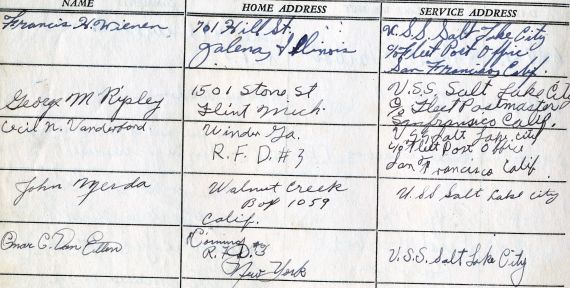 NAME HOME ADDRESS SERVICE ADDRESS
Francis W. Wienen 701 Hill St. U.S.S. Salt Lake City
Galena, Illinois c/o Fleet Post Office
San Francisco, Calif.
George M Ripley 1501 Stone St U.S.S. Salt Lake City
Flint Mich. c/o Fleet Postmaster
Sanfransico Calif.
Cecil N. Vanderford. Winder Ga. U.S.S. Salt Lake City
R.F.D. #3 c/o Fleet Post Office
San Francisco Calif.
John Merda Walnut Creek U.SS Salt Lake City
Box 1059
Calif.
Omar C. Van Etten Corning U.S.S. Salt Lake City
R.F.D. #3
New York